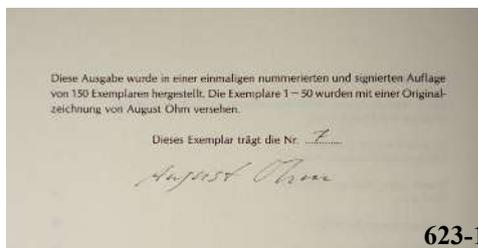 Diese Ausgabe wurde in einer einmaligen nummerierten und signierten Auflage
von 150 Exemplaren hergestellt. Die Exemplare 1 – 50 wurden mit einer Original-
zeichnung von August Ohm versehen.
Dieses Exemplar trägt die Nr. 7
August Ohm
623-1